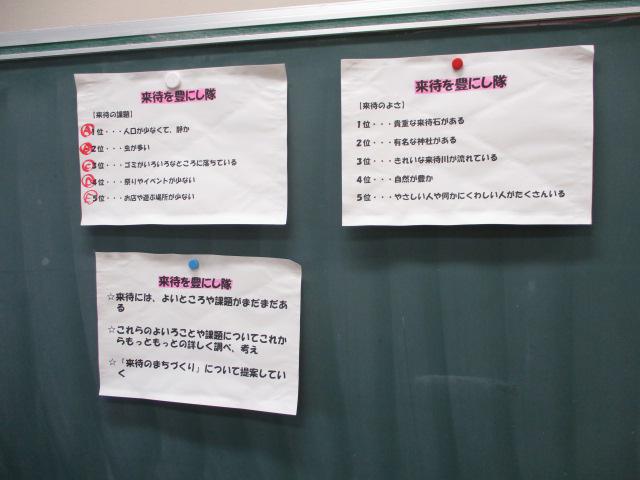 来待を豊にし隊
【来待の課題】
A 1位・・・人口が少なくて、静か
2位・・・虫が多い
C 3位・・・ゴミがいろいろなところに落ちている
D 4位・・・祭りやイベントが少ない
E 5位・・・お店や遊ぶ場所が少ない
来待を豊にし隊
【来待のよさ】
1位・・・貴重な来待石がある
2位・・・有名な神社がある
3位・・・きれいな来待川が流れている
4位・・・自然が豊か
5位・・・やさしい人や何かにくわしい人がたくさんいる
来待を豊にし隊
☆来待には、よいところや課題がまだまだあ
る
☆これらのよいろことや課題についてこれか
らもっともっとの詳しく調べ、考え
☆「来待のまちづくり」について提案してい
く